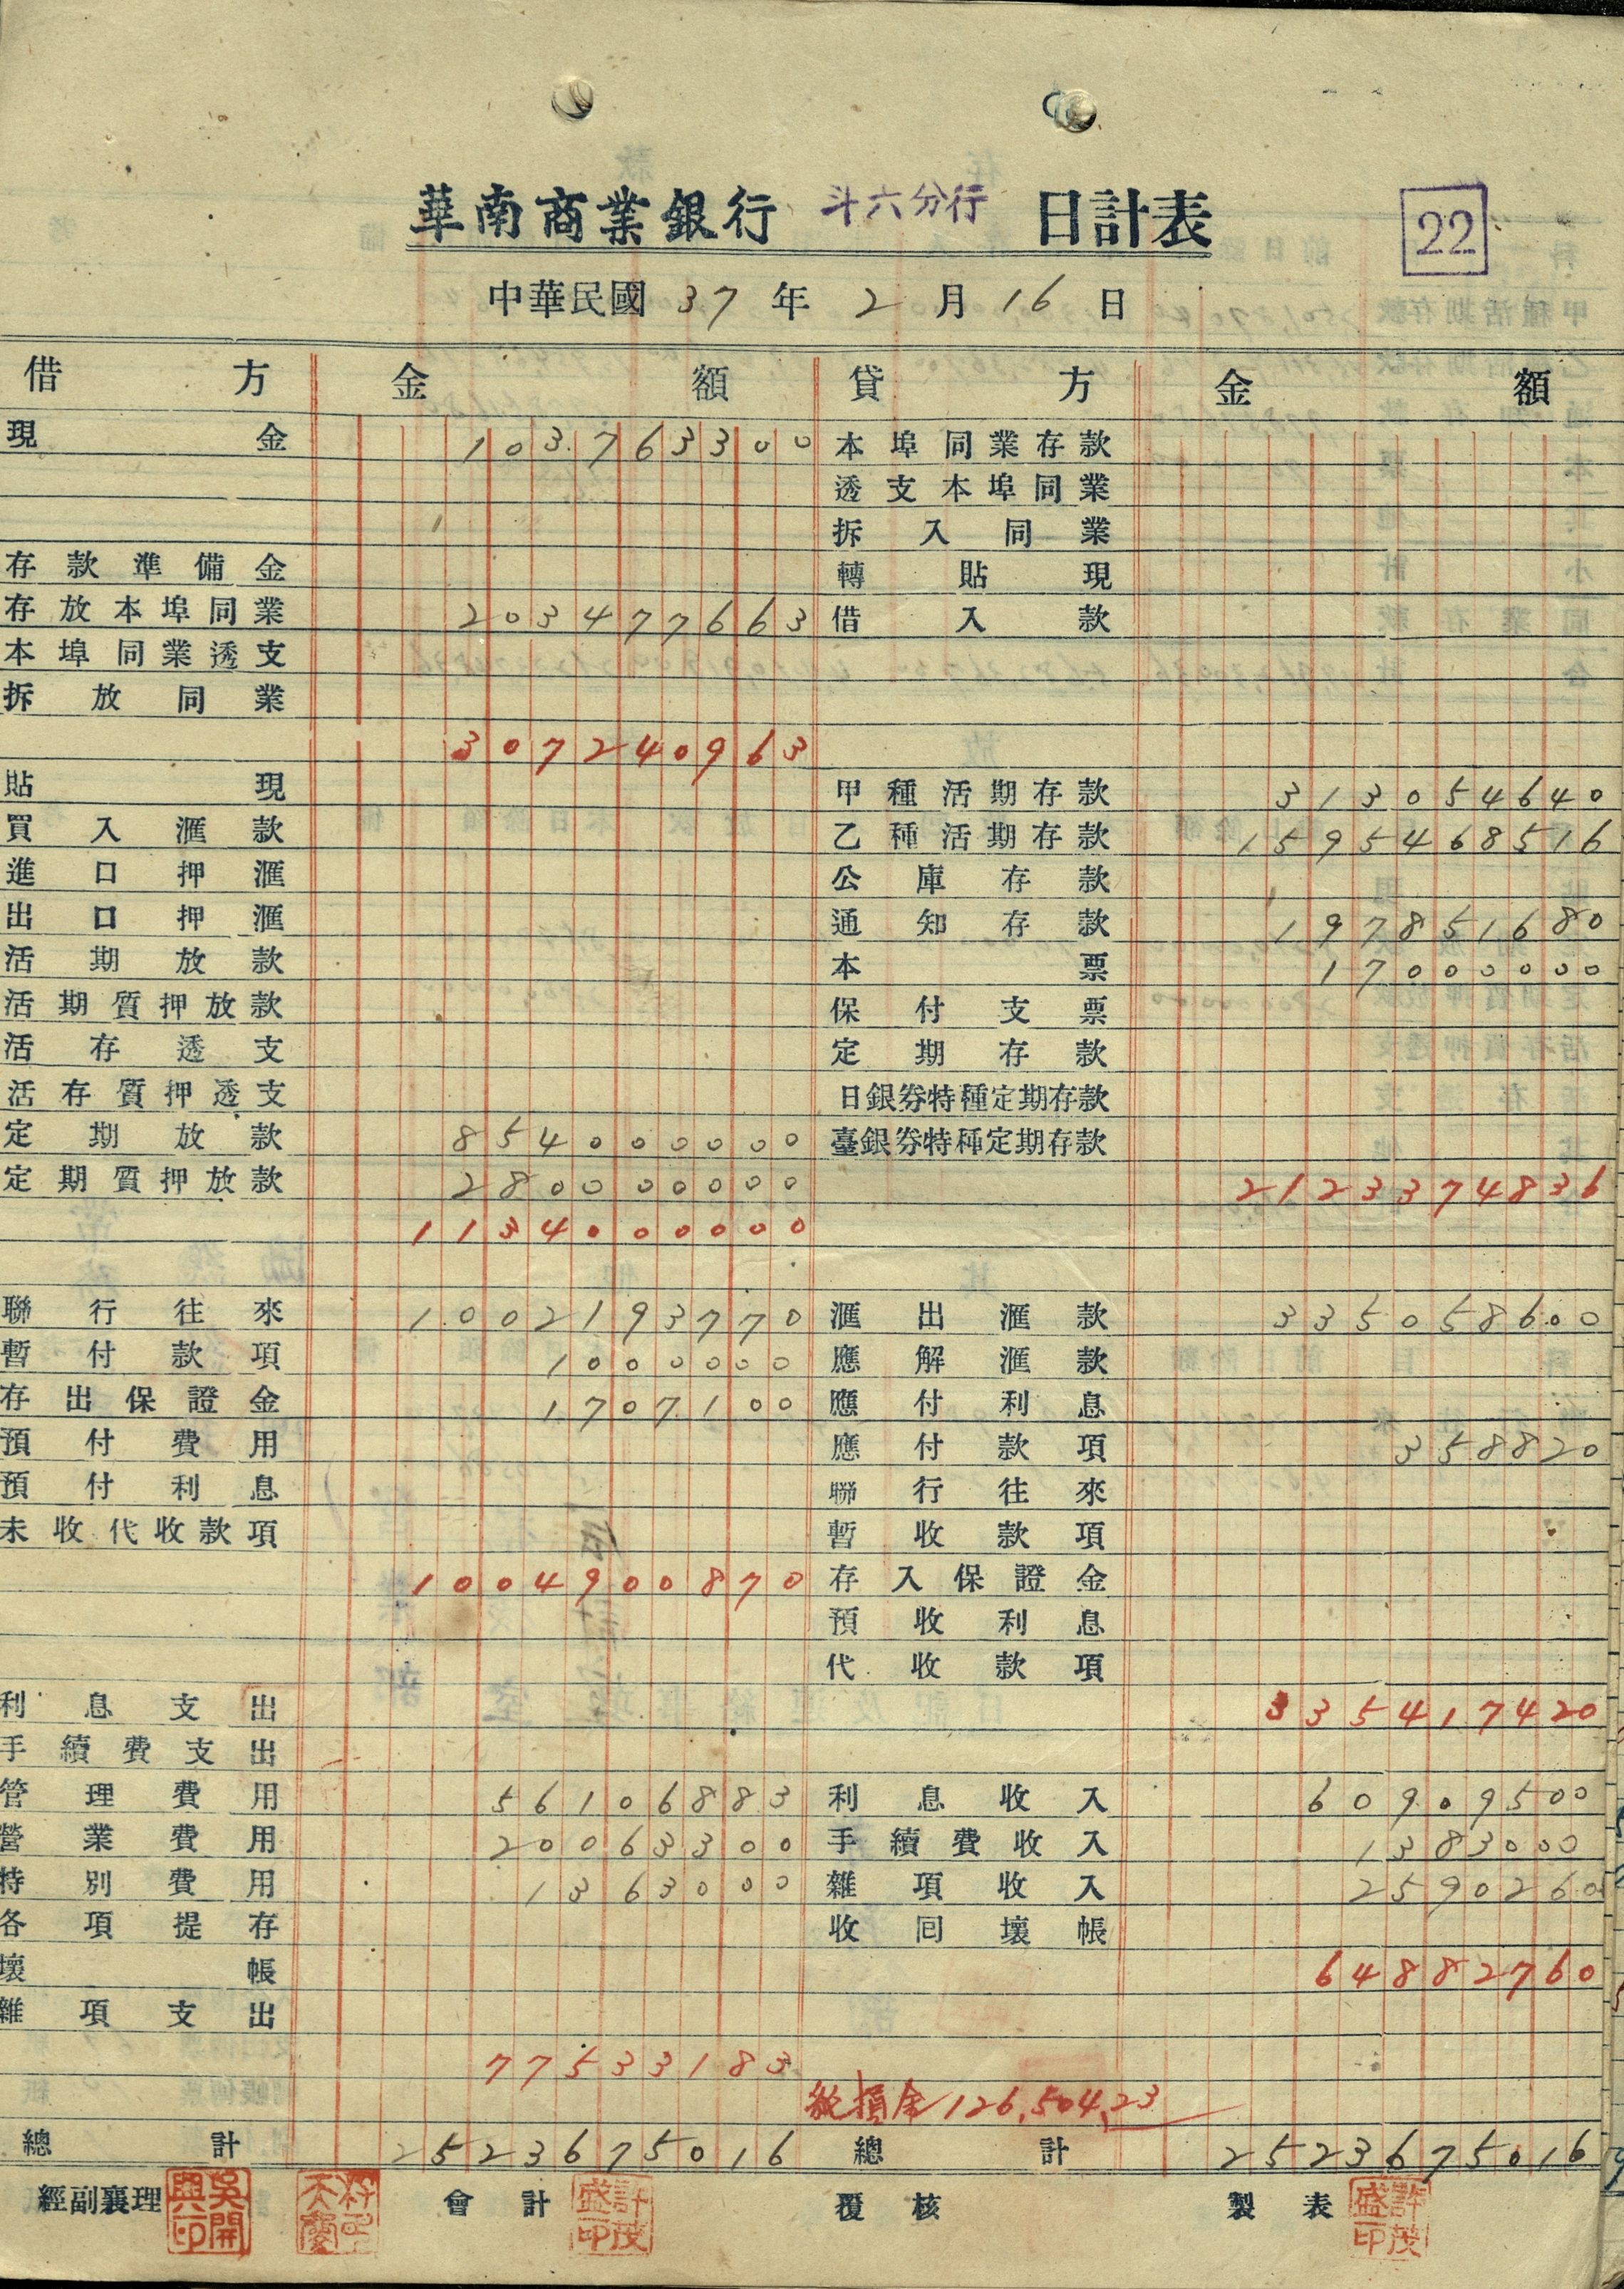 華南商業銀行 斗六分行 日計表
22
中華民國 37 年 2 月 16 日
借方 金額 貸方 金額
現金 103763300 本埠同業存款
透支本埠同業
拆入同業
存款準備金 轉貼現
存放本埠同業 203477663 借入款
本埠同業透支
拆放同業
307240963
貼現 甲種活期存款 313054640
買入滙款 乙種活期存款 1595468516
進口押滙 公庫存款
出口押滙 通知存款 197851680
活期放款 本票 17000000
活期質押放款 保付支票
活存透支 定期存款
活存質押透支 日銀券特種定期存款
定期放款 854000000 臺銀券特種定期存款
定期質押放款 280000000 2123374836
1134000000
聯行往來 1002193770 滙出滙款 335058600
暫付款項 1000000 應解滙款
存出保證金 1707100 應付利息
預付費用 應付款項 358820
預付利息 聯行往來
未收代收款項 暫收款項
1004900870 存入保證金
預收利息
代收款項
利息支出 335417420
手續費支出
管理費用 56106883 利息收入 60909500
營業費用 20063300 手續費收入 1383000
特別費用 1363000 雜項收入 2590260
各項提存 收回壞帳
壞帳 64882760
雜項支出
77533183
純損金 126,504.23
總計 2523675016 總計 2523675016
經副襄理 吳開興印 會計 許茂盛印 覆核 製表 許茂盛印